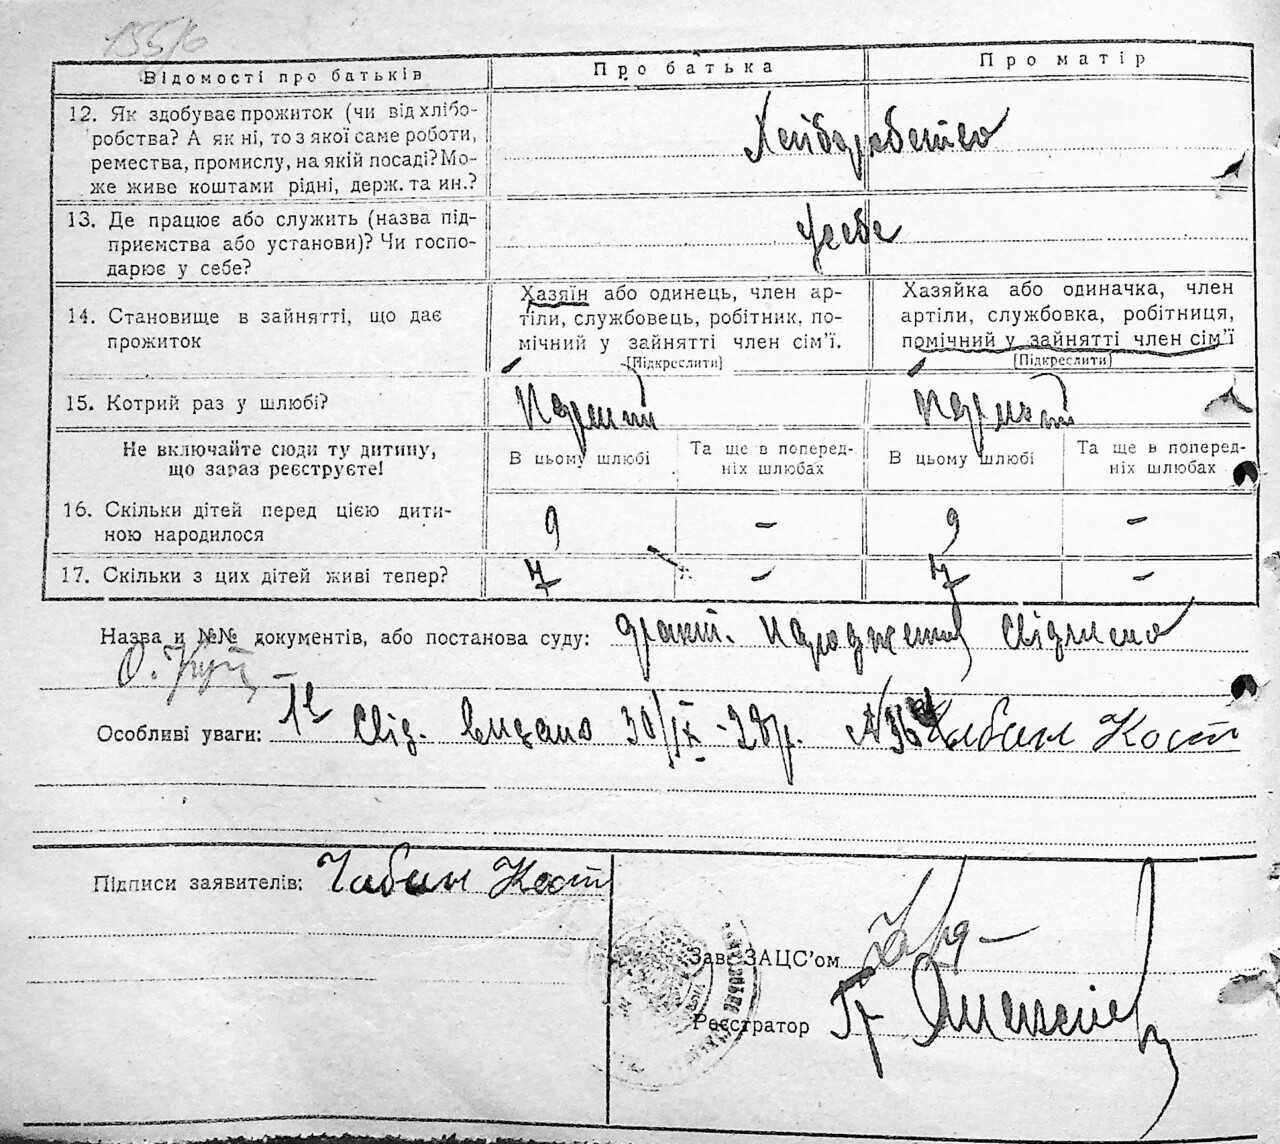 155/6
Відомості про батьків
Про батька
Про матір
12. Як здобуває прожиток (чи від хлібо-
робства? А як ні, то з якої саме роботи,
ремества, промислу, на якій посаді? Мо-
же живе коштами рідні, держ. та ин.?
Хліборобство
13. Де працює або служить (назва під-
приємства або установи)? Чи госпо-
дарює у себе?
У себе
14. Становище в зайнятті, що дає
прожиток
Хазяїн або одинець, член ар-
тіли, службовець, робітник, по-
мічний у зайнятті член сім’ї.
[Підкреслити]
Хазяйка або одиначка, член
артіли, службовка, робітниця,
помічний у зайнятті член сім’ї
[Підкреслити]
15. Котрий раз у шлюбі?
Не включайте сюди ту дитину,
що зараз реєструєте!
В цьому шлюбі
Та ще в поперед-
ніх шлюбах
В цьому шлюбі
Та ще в поперед-
ніх шлюбах
16. Скільки дітей перед цією дити-
ною народилося
9 – 9 –
17. Скільки з цих дітей живі тепер?
7 – 7 –
Назва и №№ документів, або постанова суду:
Особливі уваги: Свід. видано 30/IX-28р. Чабан Кост
Підписи заявителів: Чабан Кост
Зав. ЗАЦС’ом
Реєстратор